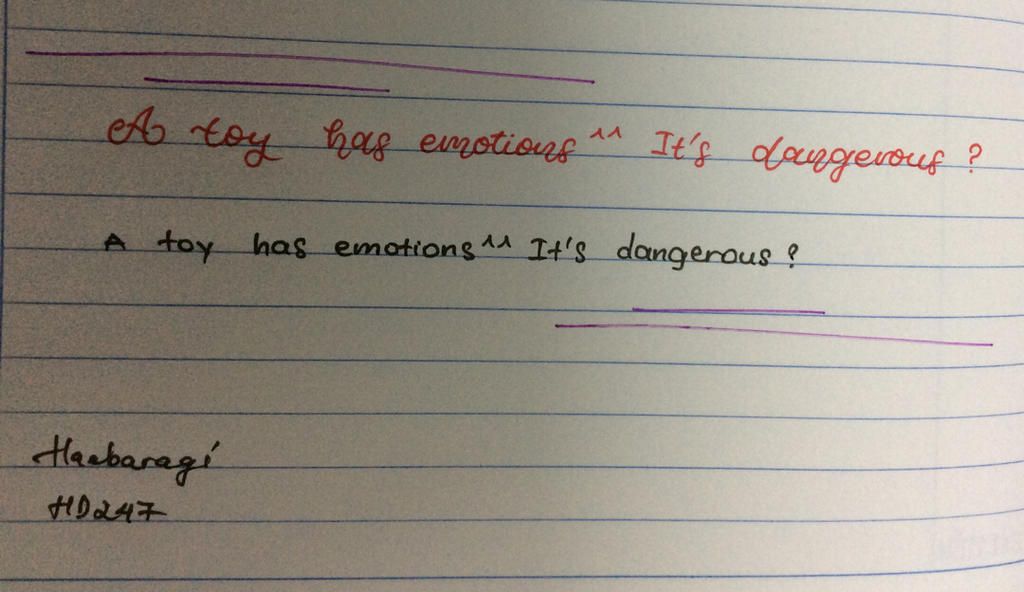 A toy has emotions ^^ It's dangerous ?
A toy has emotions ^^ It's dangerous ?
Haebaragi
HD247